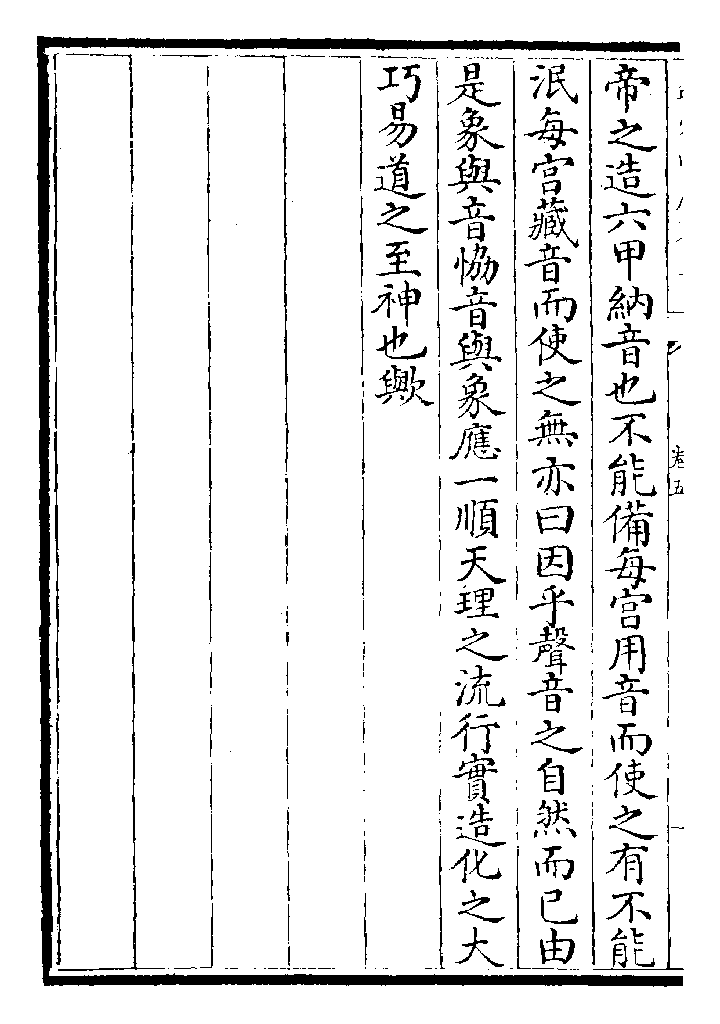 帝之造六甲納音也不能備每宫用音而使之有不能
泯每宫藏音而使之無亦曰因乎聲音之自然而已由
是象與音恊音與象應一順天理之流行實造化之大
巧易道之至神也歟
卷五